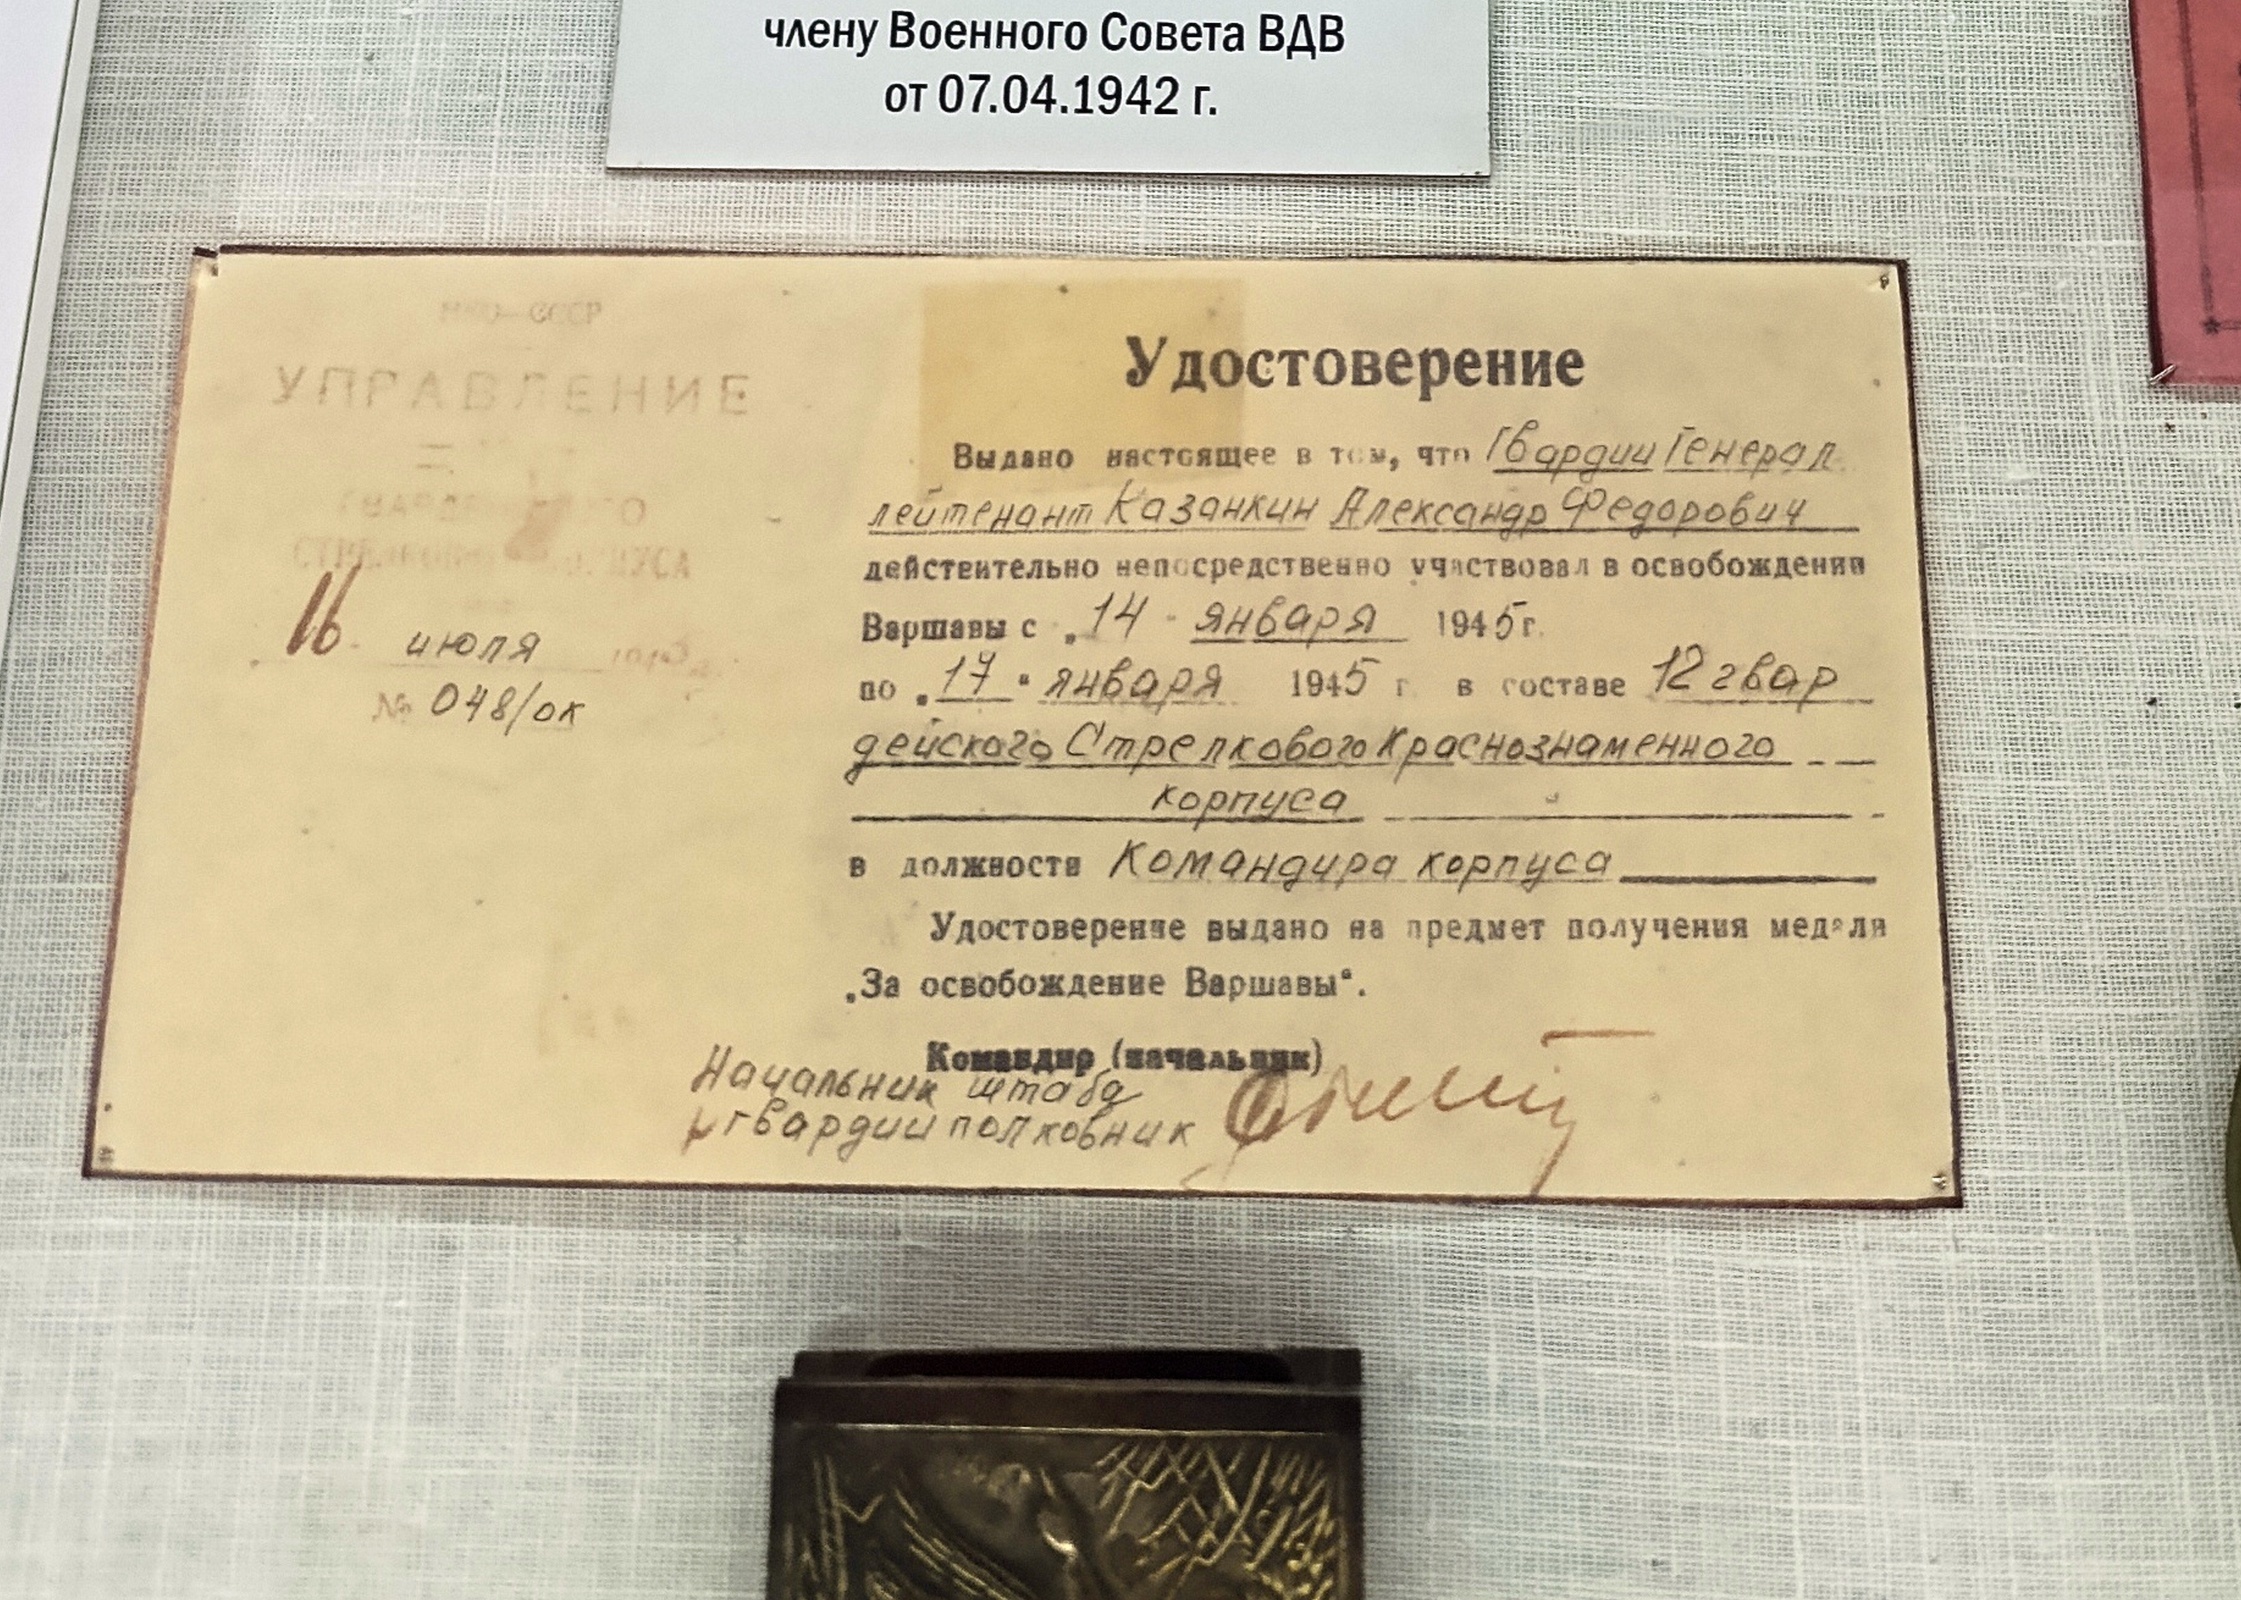 члену Военного Совета ВДВ
от 07.04.1942 г.
НКО—СССР
УПРАВЛЕНИЕ
ГВАРДЕЙСКОГО
СТРЕЛКОВОГО КОРПУСА
16 июля 1945 г.
№ 048/ок
Удостоверение
Выдано настоящее в том, что Гвардии Генерал
лейтенант Казанкин Александр Федорович
действительно непосредственно участвовал в освобождении
Варшавы с „14 " января 1945 г.
по „17 " января 1945 г. в составе 12 гвар
дейского Стрелкового Краснознаменного
корпуса
в должности Командира корпуса
Удостоверение выдано на предмет получения медали
„За освобождение Варшавы“.
Командир (начальник)
Начальник штаба
гвардии полковник